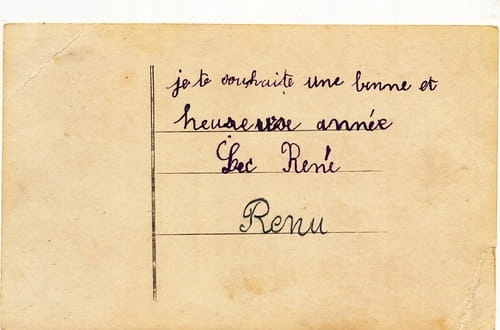 je te souhaite une bonne et
heureuse année
Lec René
Renu